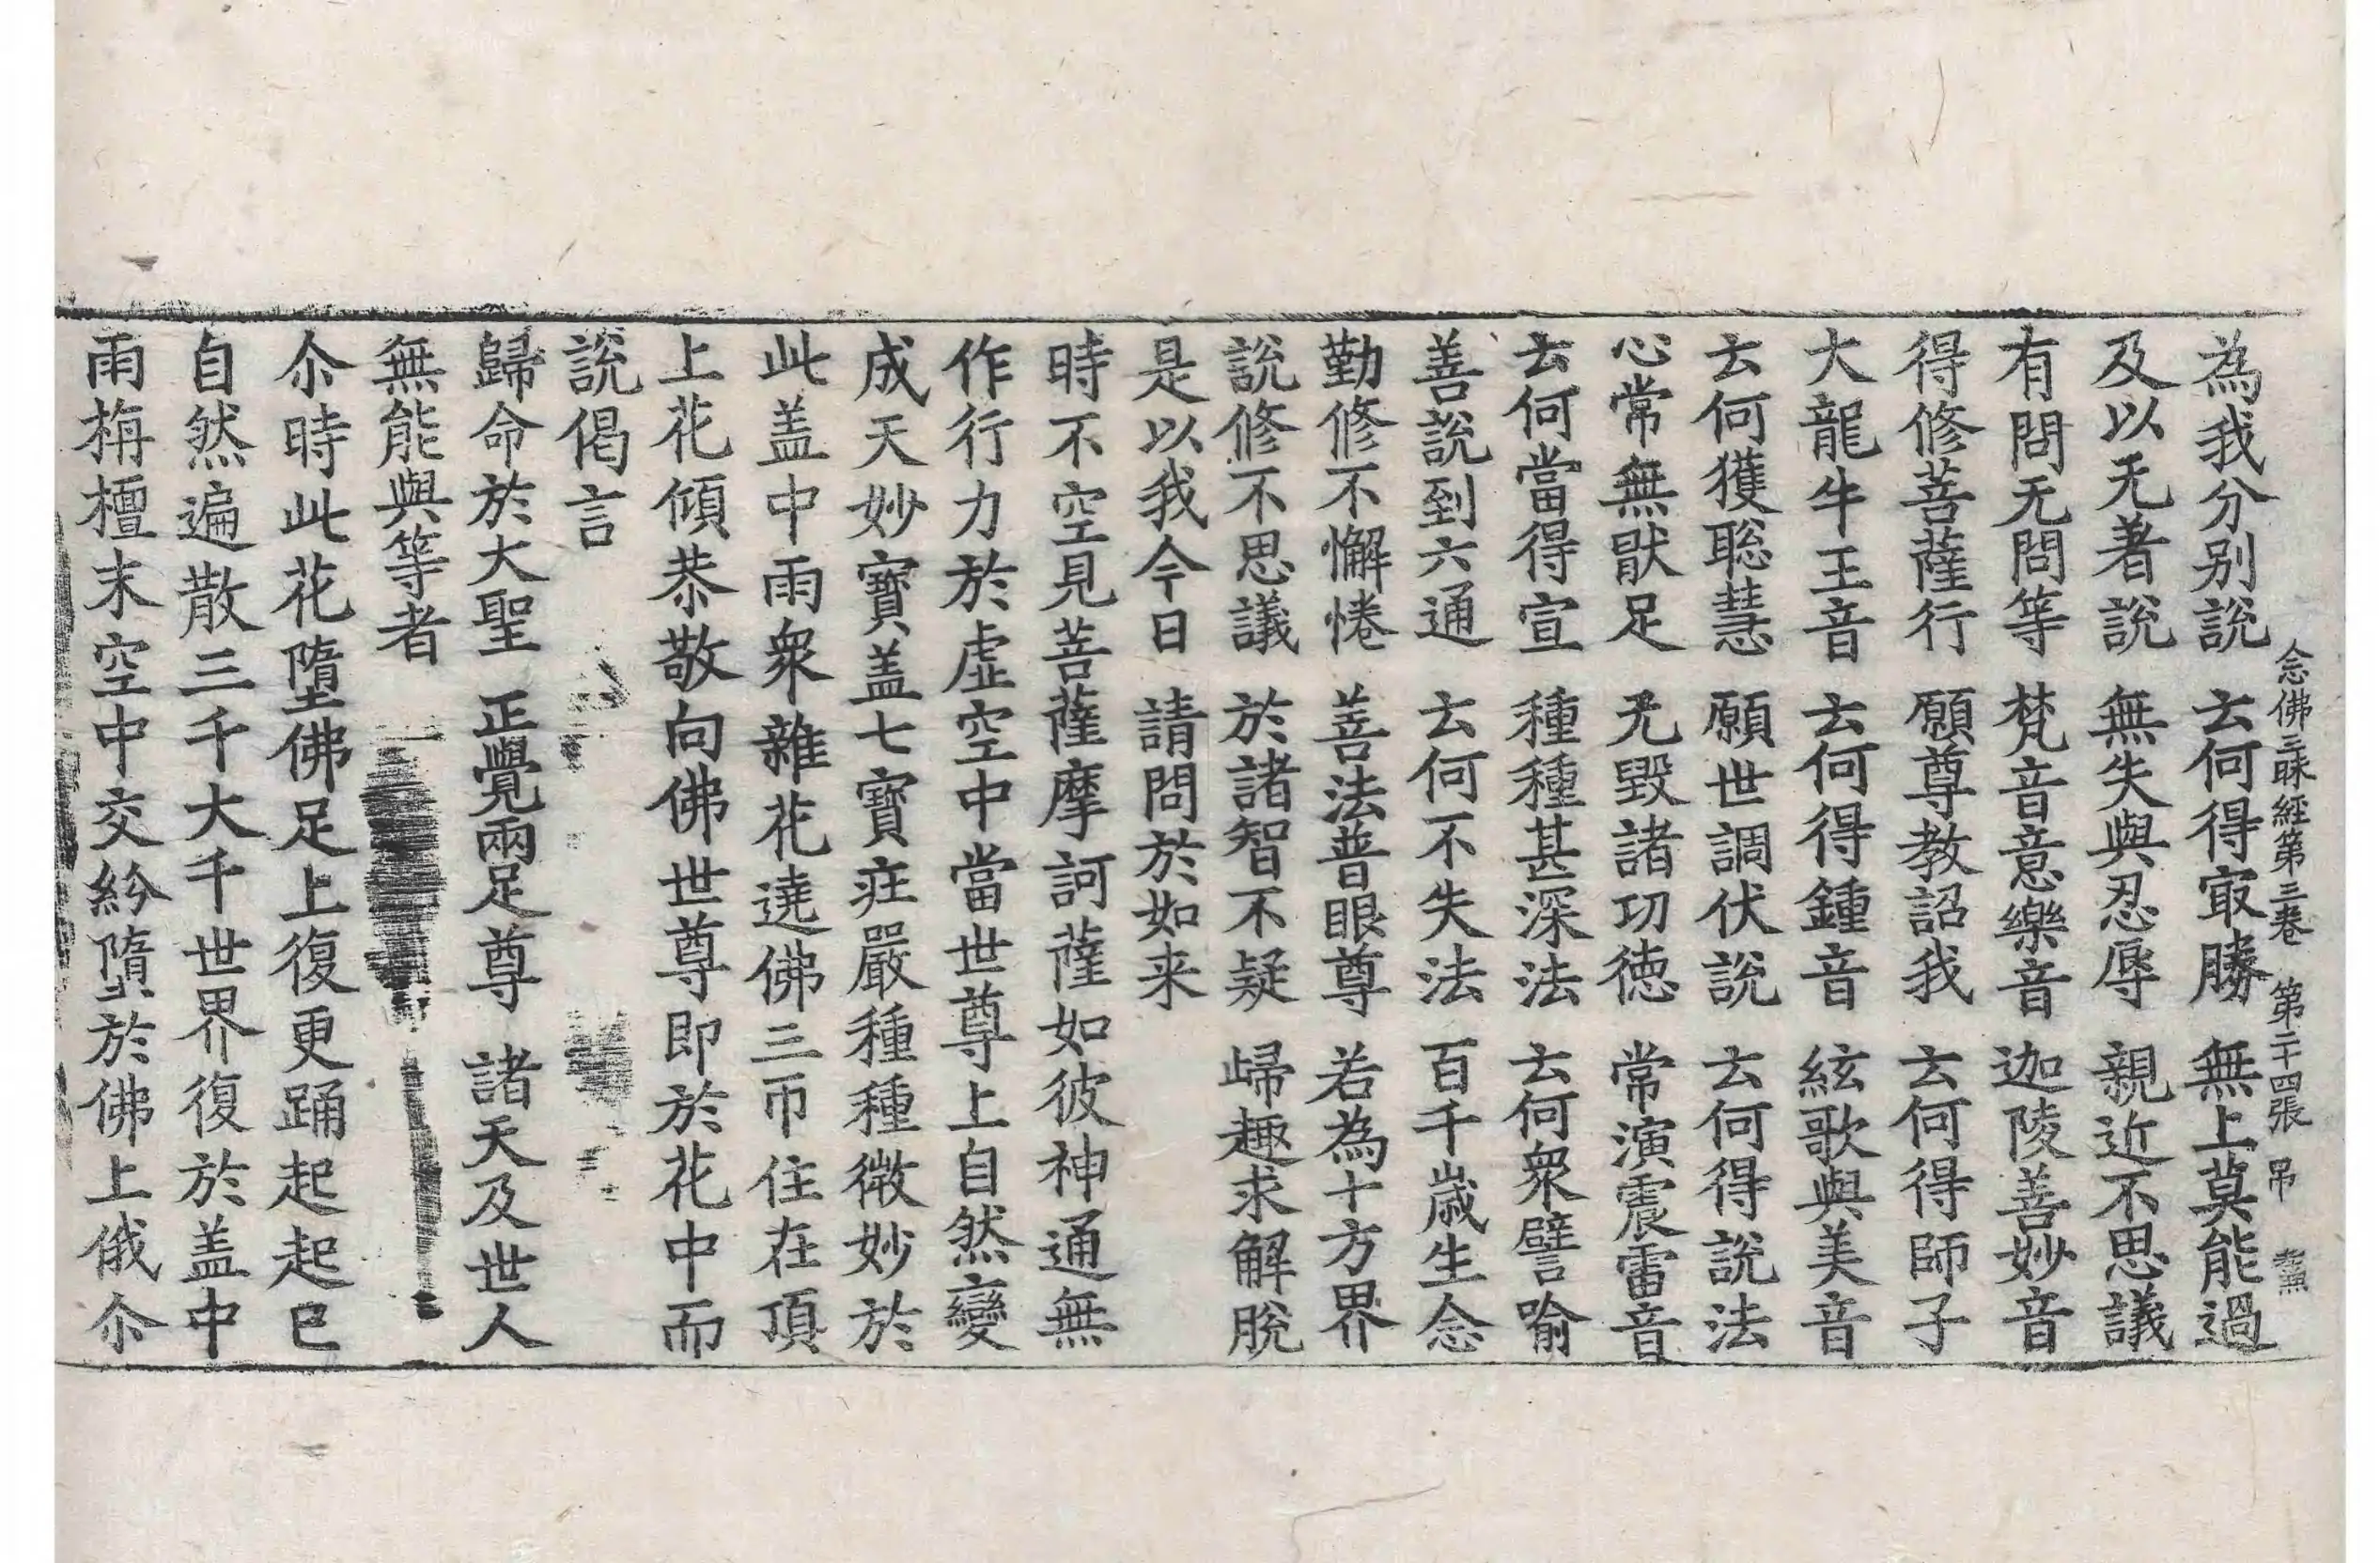 念佛三昧經第三卷 第二十四張 吊
為我分別說 云何得㝡勝 無上莫能過
及以无著說 無失與忍辱 親近不思議
有問无問等 梵音意樂音 迦陵善妙音
得修菩薩行 願尊教詔我 云何得師子
大龍牛王音 云何得鍾音 絃歌與美音
云何獲聡慧 願世調伏說 云何得說法
心常無猒足 无毀諸功德 常演震雷音
云何當得宣 種種甚深法 云何衆譬喻
善說到六通 云何不失法 百千歲生念
勤修不懈惓 善法普眼尊 若為十方界
說修不思議 於諸智不疑 歸趣求解脫
是以我今日 請問於如来
時不空見菩薩摩訶薩如彼神通無
作行力於虛空中當世尊上自然變
成天妙寶盖七寶疰嚴種種微妙於
此盖中雨衆雜花遶佛三帀住在頂
上花傾恭敬向佛世尊即於花中而
說偈言
歸命於大聖 正覺兩足尊 諸天及世人
無能與等者
尒時此花墮佛足上復更踊起起已
自然遍散三千大千世界復於盖中
雨栴檀末空中交紛墮於佛上俄尒